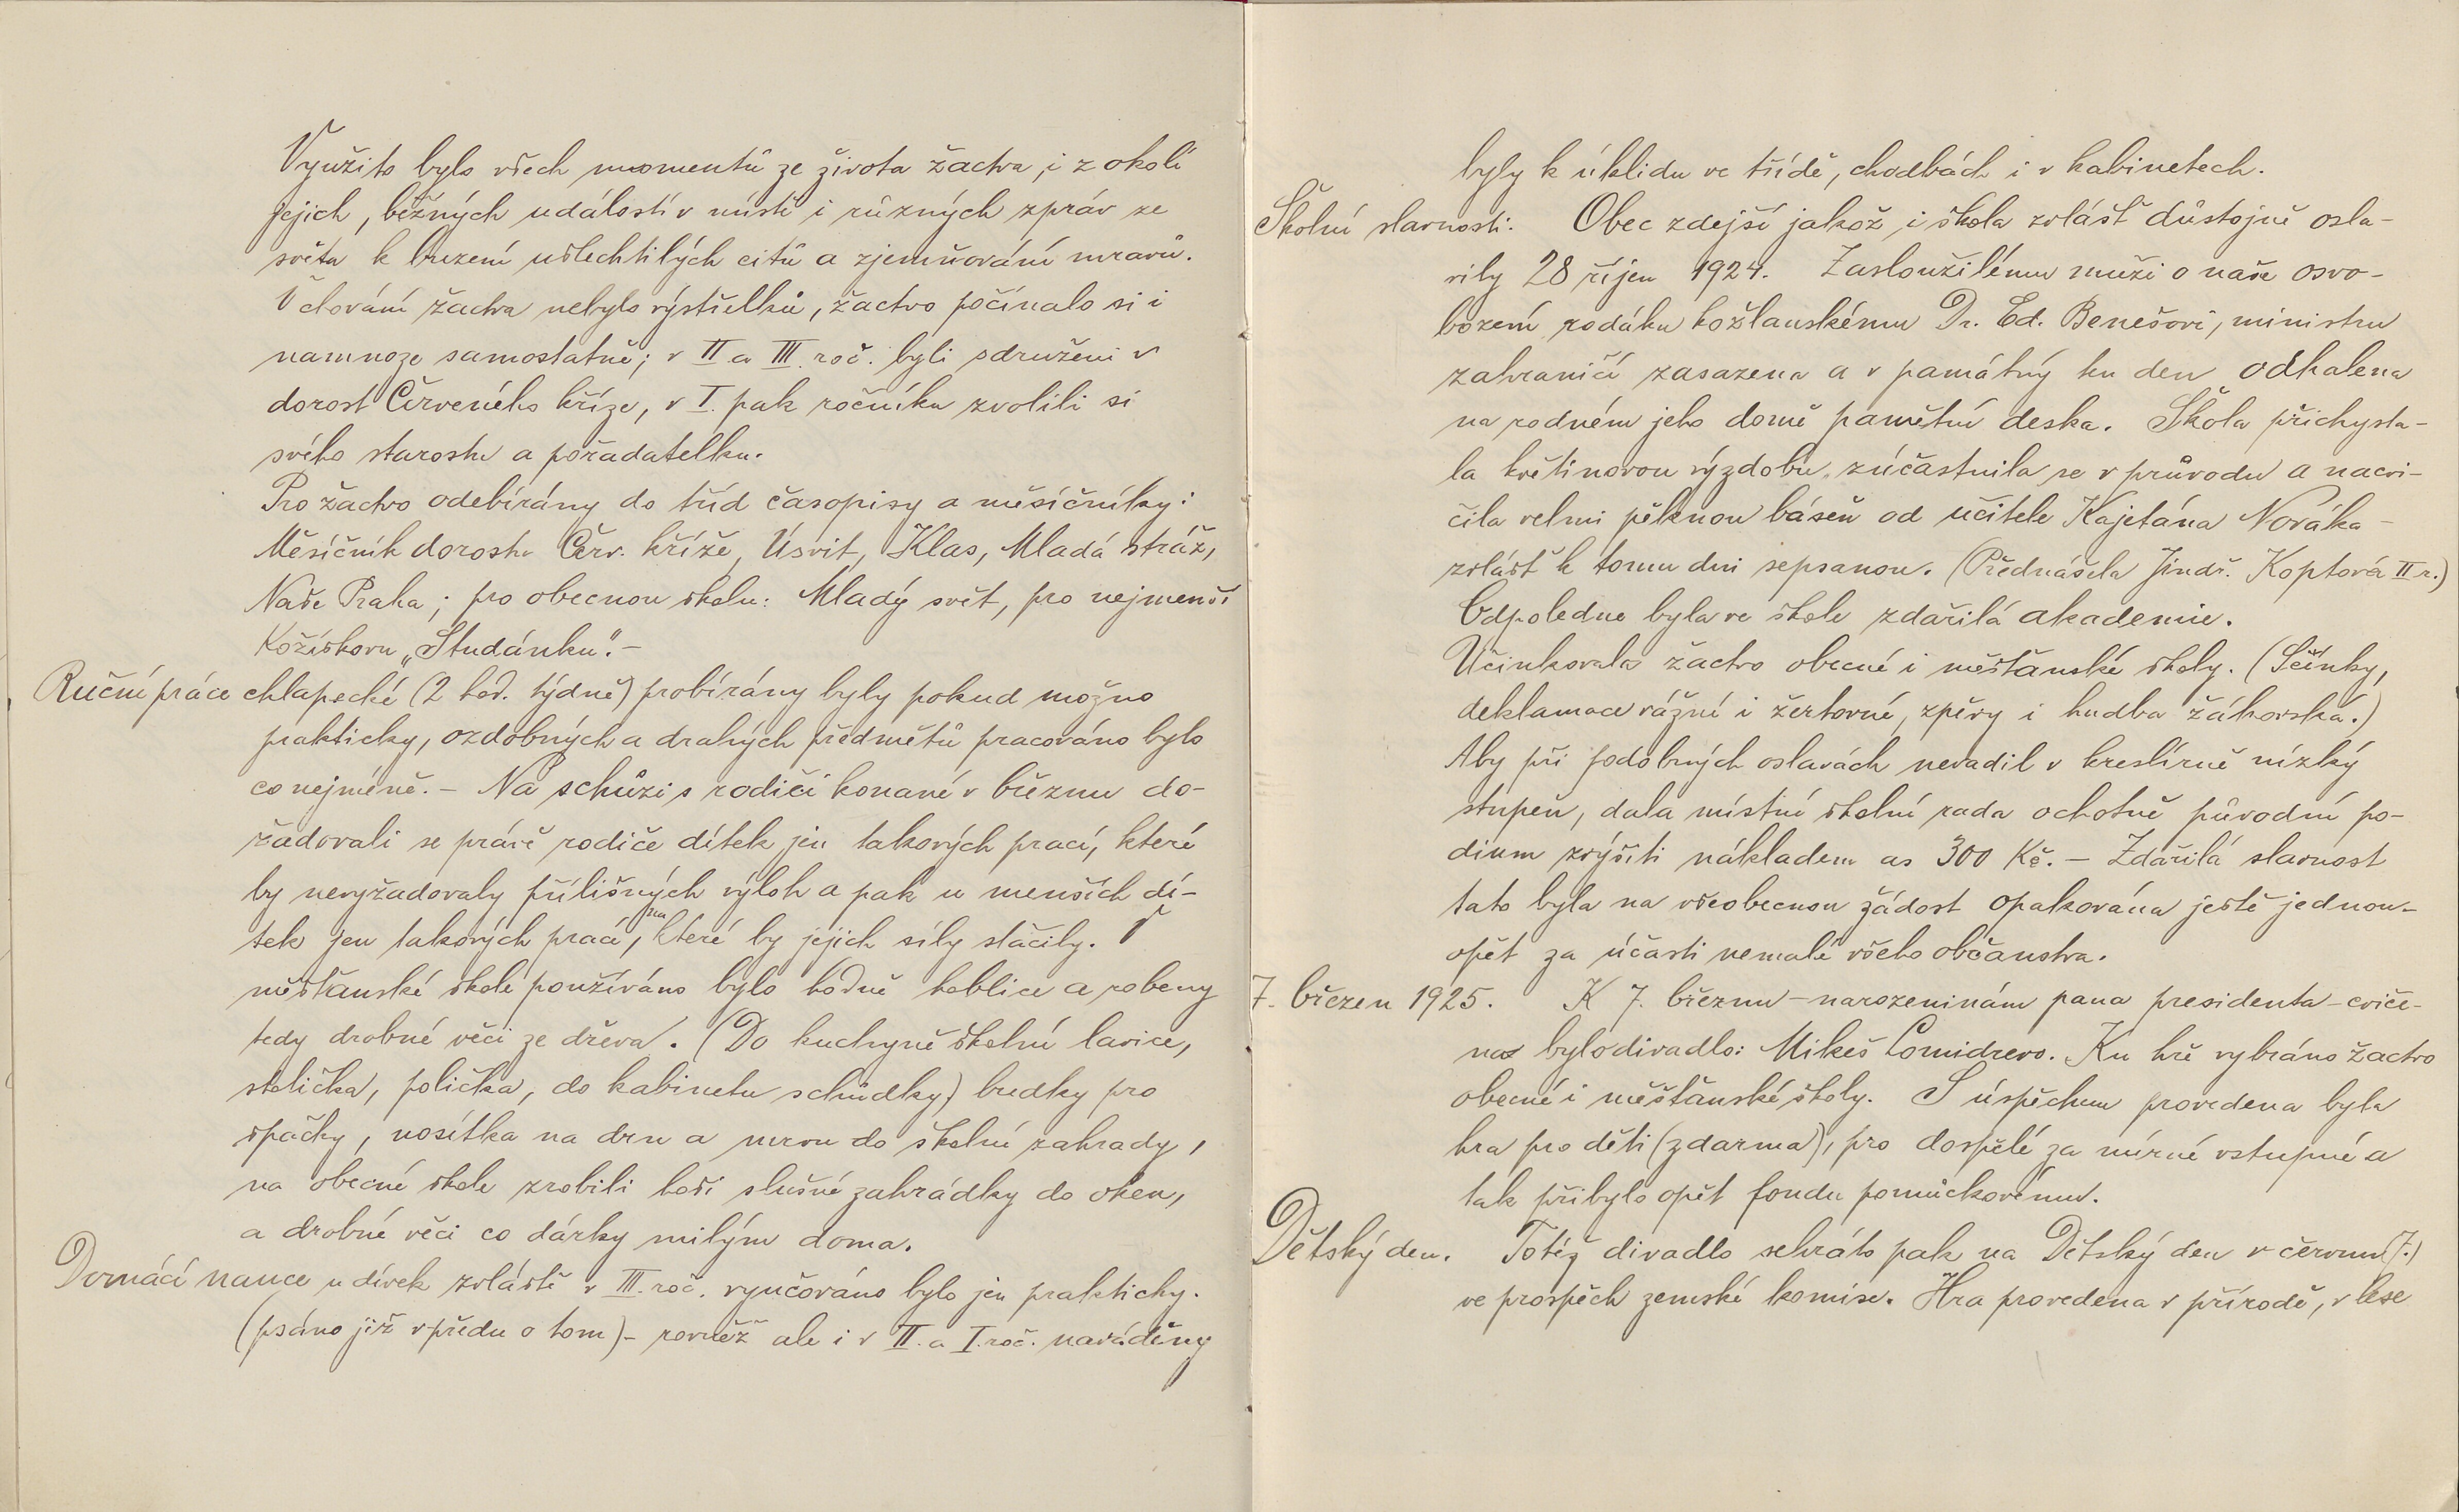 Využito bylo všech momentů ze života žactva, i z okolí
jejich, běžných událostí v místě i různých zpráv ze
světa k buzení ušlechtilých citů a zjemňování mravů.
V chování žactva nebylo výstřelků, žactvo počínalo si i
namnoze samostatně; v II. a III. roč. byli sdruženi v
dorost Červeného kříže, v I. pak ročníku zvolili si
svého starostu a pořadatelku.
Pro žactvo odebírány do tříd časopisy a měsíčníky:
Měsíčník dorostu Červ. kříže, Úsvit, Klas, Mladá stráž,
Naše Praha; pro obecnou školu: Mladý svět, pro nejmenší
Kožíškovu „Studánku". –
Ruční práce chlapecké (2 hod. týdně) probírány byly pokud možno
prakticky, ozdobných a drahých předmětů pracováno bylo
co nejméně. – Na schůzi s rodiči konané v březnu do-
žadovali se právě rodiče dítek jen takových prací, které
by nevyžadovaly přílišných výloh a pak u menších dí-
tek jen takových prací, na které by jejich síly stačily. V
měšťanské škole používáno bylo hodně hoblice a robeny
tedy drobné věci ze dřeva. (Do kuchyně školní lavice,
stolička, polička, do kabinetu schůdky) budky pro
špačky, nosítka na drn a mrvu do školní zahrady,
na obecné škole zrobili hoši slušné zahrádky do oken,
a drobné věci co dárky milým doma.
Domácí nauce u dívek zvláště v III. roč. vyučováno bylo jen prakticky.
(psáno již vpředu o tom) – rovněž ale i v II. a I. roč. naváděny
byly k úklidu ve třídě, chodbách i v kabinetech.
Školní slavnosti. Obec zdejší jakož i škola zvlášť důstojně osla-
vily 28 říjen 1924. Zasloužilému muži o naše osvo-
bození rodáku kožlanskému Dr. Ed. Benešovi, ministru
zahraničí zasazena a v památný tu den odhalena
na rodném jeho domě pamětní deska. Škola přichysta-
la květinovou výzdobu, zúčastnila se v průvodu a nacvi-
čila velmi pěknou báseň od učitele Kajetána Nováka –
zvlášť k tomu dni sepsanou. (Přednášela Jindř. Koptová II r.)
Odpoledne byla ve škole zdařilá akademie.
Účinkovalo žactvo obecné i měšťanské školy. (Scénky,
deklamace vážné i žertovné, zpěvy i hudba žákovská.)
Aby při podobných oslavách nevadil v kreslírně nízký
stupeň, dala místní školní rada ochotně původní po-
dium zvýšiti nákladem as 300 Kč. – Zdařilá slavnost
tato byla na všeobecnou žádost opakována ještě jednou –
opět za účasti nemalé všeho občanstva.
7. březen 1925. K 7. březnu – narozeninám pana presidenta – cviče-
no bylo divadlo: Mikeš Lomidrevo. Ku hře vybráno žactvo
obecné i měšťanské školy. S úspěchem provedena byla
hra pro děti (zdarma), pro dospělé za mírné vstupné a
tak přibylo opět fondu pomůckovému.
Dětský den. Totéž divadlo sehráto pak na Dětský den v červnu (7.)
ve prospěch zemské komise. Hra provedena v přírodě, v lese